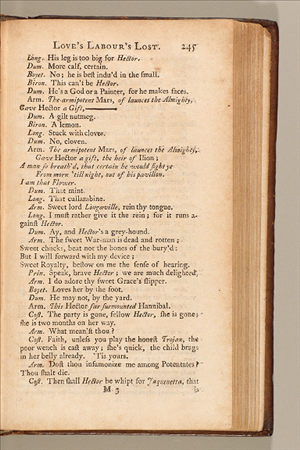 LOVE'S LABOUR'S LOST. 245
Long. His leg is too big for Hector.
Dum. More calf, certain.
Boyet. No; he is best indu'd in the small.
Biron. This can't be Hector.
Dum. He's a God or a Painter, for he makes faces.
Arm. The armipotent Mars, of launces the Almighty,
Gave Hector a Gift,
Dum. A gilt nutmeg.
Biron. A lemon.
Long. Stuck with cloves.
Dum. No, cloven.
Arm. The armipotent Mars, of launces the Almighty,
Gave Hector a gift, the heir of Ilion;
A man so breath'd, that certain he would fight ye
From morn 'till night, out of his pavilion.
I am that Flower.
Dum. That mint.
Long. That cullambine.
Arm. Sweet lord Longaville, rein thy tongue.
Long. I must rather give it the rein; for it runs a-
gainst Hector.
Dum. Ay, and Hector's a grey-hound.
Arm. The sweet War-man is dead and rotten;
Sweet chucks, beat not the bones of the bury'd:
But I will forward with my device;
Sweet Royalty, bestow on me the sense of hearing.
Prin. Speak, brave Hector; we are much delighted.
Arm. I do adore thy sweet Grace's slipper.
Boyet. Loves her by the foot.
Dum. He may not, by the yard.
Arm. This Hector far surmounted Hannibal.
Cost. The party is gone, fellow Hector, she is gone;
she is two months on her way.
Arm. What mean'st thou?
Cost. Faith, unless you play the honest Trojan, the
poor wench is cast away; she's quick, the child brags
in her belly already. 'Tis yours.
Arm. Dost thou infamonize me among Potentates?
Thou shalt die.
Cost. Then shall Hector be whipt for Jaquenetta, that
M 3